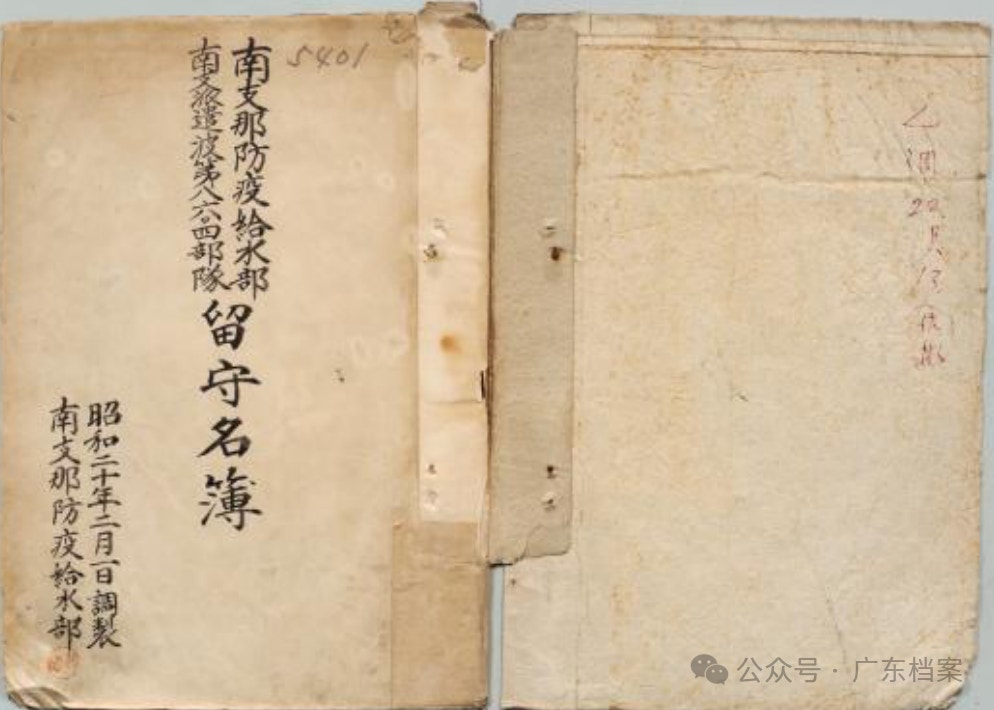 5401
南支那防疫給水部
南支派遣波第八六〇四部隊
留守名簿
昭和二十年二月一日調製
南支那防疫給水部
公众号 · 广东档案